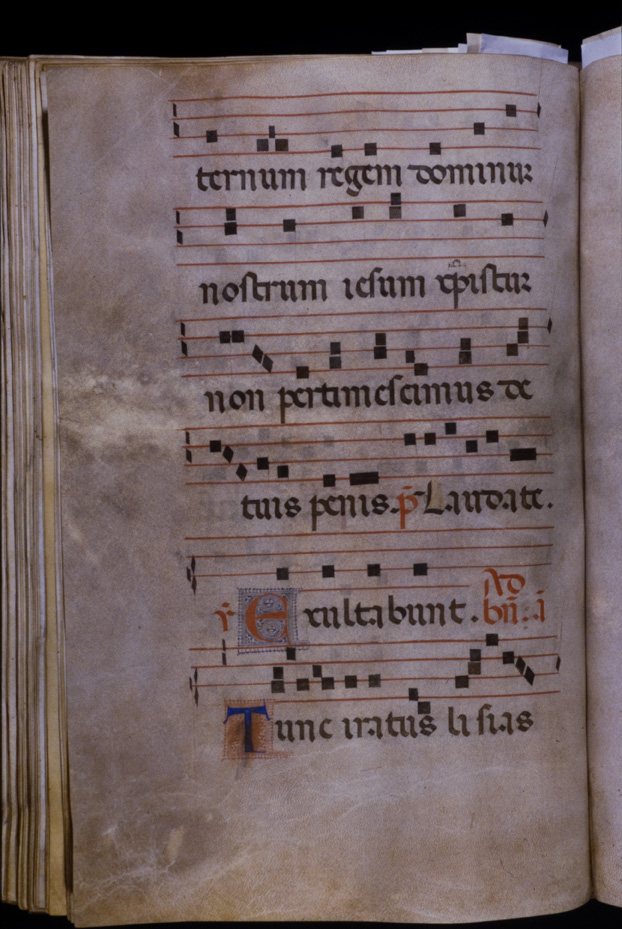 ternum regem dominum
nostrum iesum xp̄istum
non pertimescimus de
tuis penis. p̄ Laudate.
Ad
℣ Exultabunt. bn̄. a̅
Tunc iratus lisias